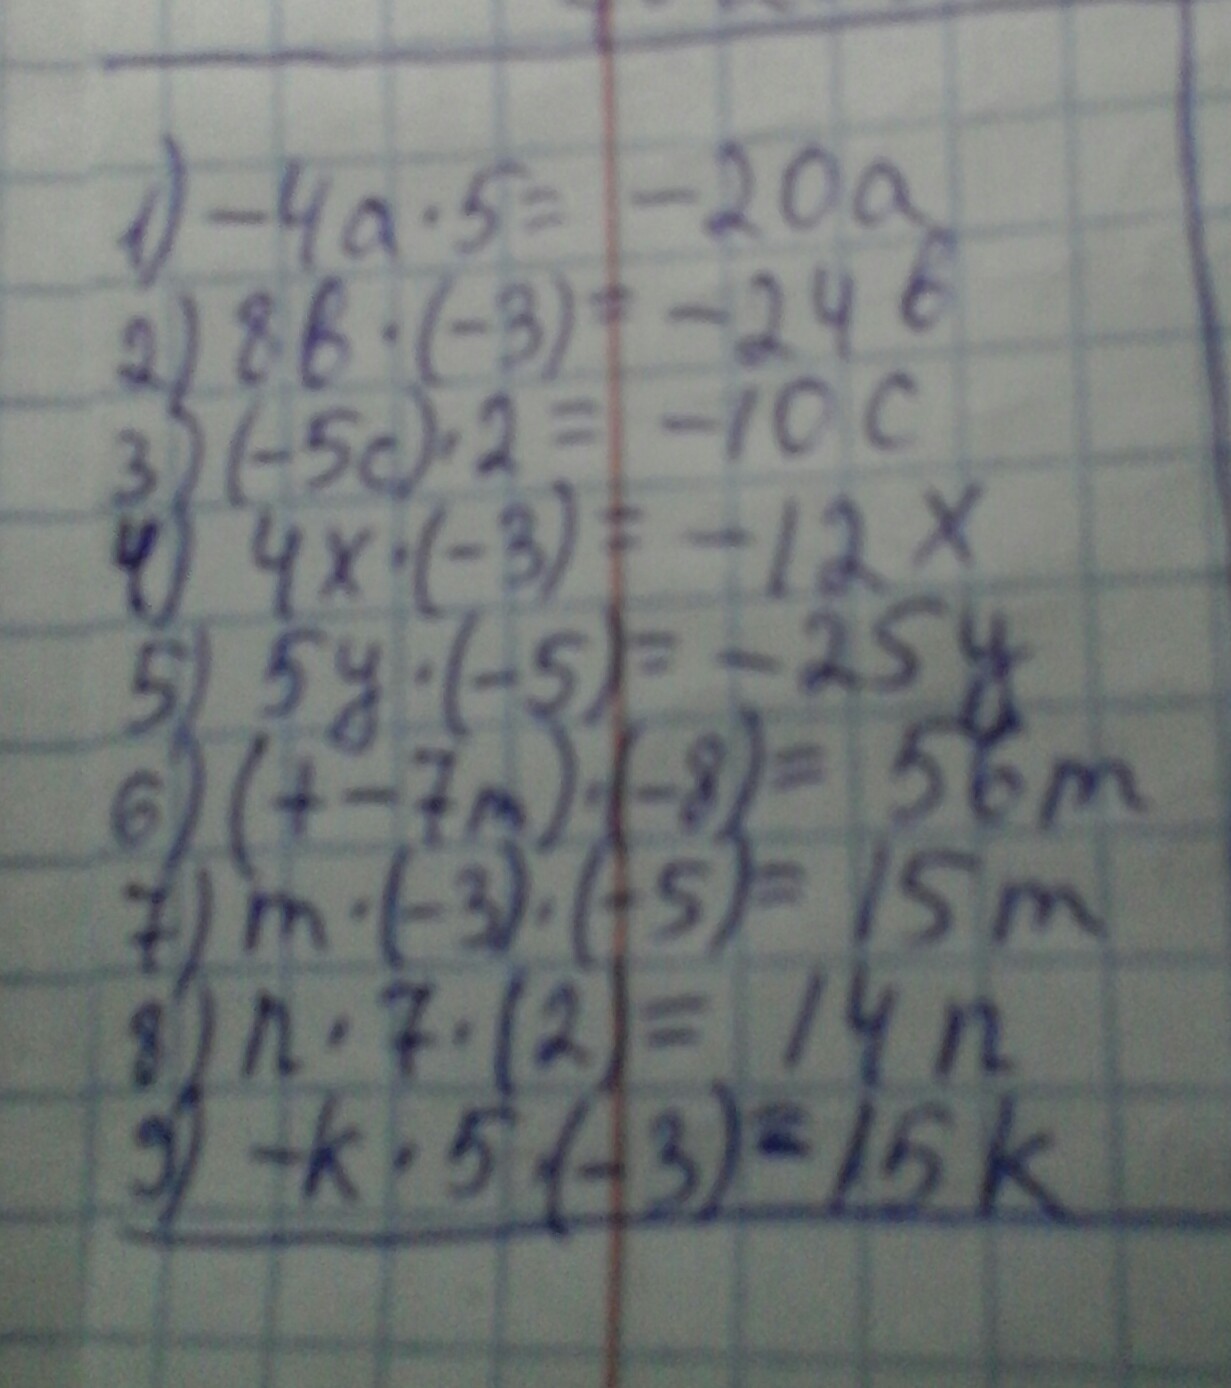 1) -4a·5= -20a
2) 8b·(-3)= -24b
3) (-5c)·2= -10c
4) 4x·(-3)= -12x
5) 5y·(-5)= -25y
6) (+-7m)·(-8)= 56m
7) m·(-3)·(-5)= 15m
8) n·7·(2)= 14n
9) -k·5·(-3)=15k